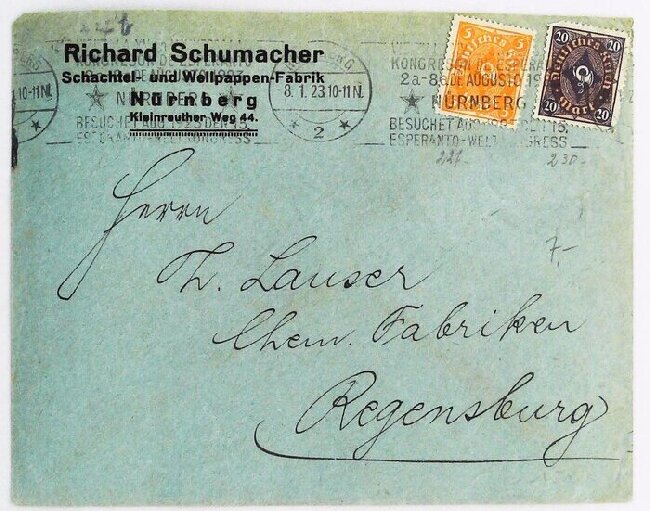 Richard Schumacher
Schachtel- und Wellpappen-Fabrik
Nürnberg
Kleinreuther Weg 44.
8.1.23.10-11N.
2
KONGRESO DE ESPERANTO
2a-8a DE AUGUSTO 19
NÜRNBERG
BESUCHET AUG. 1923 DEN 15.
ESPERANTO-WELTKONGRESS
10-11N.
5
5
Deutsches Reich
20
20
Deutsches Reich
20
Mark
20
227.
230.-
7,-
Herrn
Th. Lauser
Chem. Fabriken
Regensburg